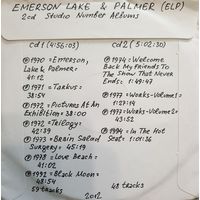 EMERSON LAKE & PALMER (ELP)
2cd Studio Number Albums
Cd 1 (4:56:03)
1970 = Emerson,
Lake & Palmer:
41:12
1971 = Tarkus:
38:54
1972 = Pictures At An
Exhibition = 38:00
1972 = Trilogy =
42:39
1973 = Brain Salad
Surgery = 45:19
1978 = Love Beach =
41:02
1992 = Black Moon =
48:54
59 tracks
Cd 2 (5:02:30)
1974 = Welcome
Back My Friends To
The Show That Never
Ends = 1:49:47
1977 = Works - Volume 1 =
1:27:14
1977 = Works - Volume 2 =
43:52
1994 = In The Hot
Seat = 1:01:36
48 tracks
2012